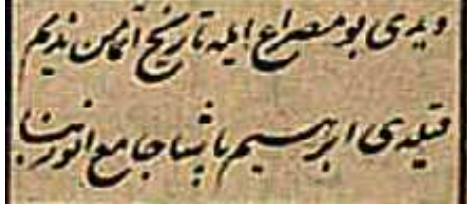 ویدی بو مصراع ایله تاریخ آنامن ندیم
قیلدی ابرهیم پاشا جامع انور بنا